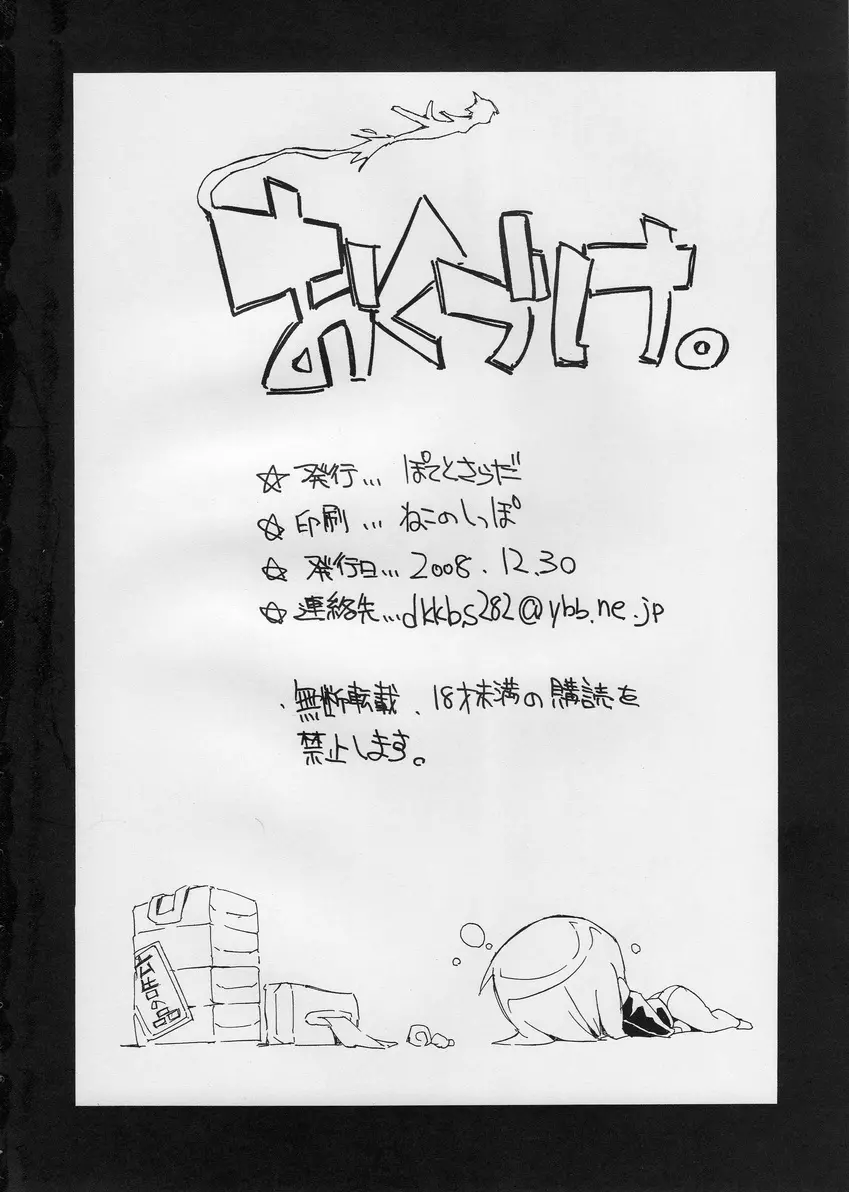 おくづけ。
☆発行... ぽてとさらだ
☆印刷... ねこのしっぽ
☆発行日... 2008.12.30
☆連絡先...dkkbs282@ybb.ne.jp
・無断転載、18才未満の購読を
禁止します。
広告の品